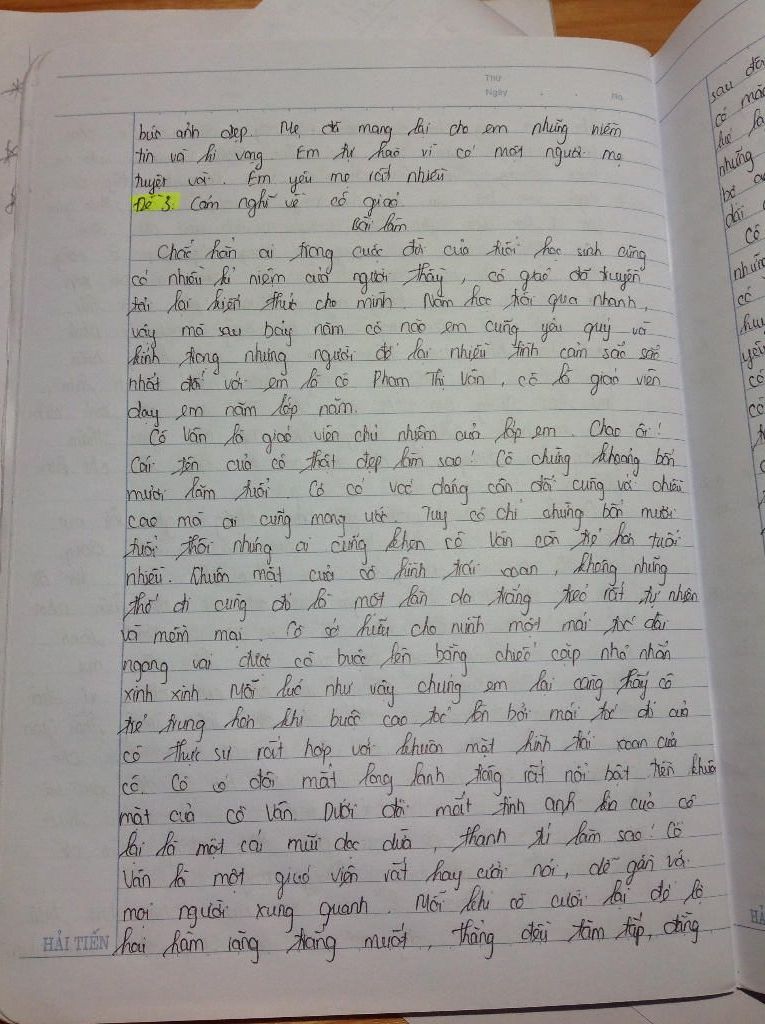 Thứ
Ngày . . No.
bức anh đẹp. Mẹ đã mang lại cho em những niềm
tin và hi vọng. Em tự hào vì có một người mẹ
tuyệt vời. Em yêu mẹ rất nhiều
Đề 3: Cảm nghĩ về cô giáo.
Bài làm
Chắc hẳn ai trong cuộc đời của tuổi học sinh cũng
có nhiều kỉ niệm của người thầy, cô giáo đã truyền
tải lại kiến thức cho mình. Năm học trôi qua nhanh,
vậy mà sau bảy năm cô nào em cũng yêu quý và
kính trọng nhưng người để lại nhiều tình cảm sâu sắc
nhất đối với em là cô Phạm Thị Vân, cô là giáo viên
dạy em năm lớp năm.
Cô Vân là giáo viên chủ nhiệm của lớp em. Chao ôi!
Cái tên của cô thật đẹp làm sao! Cô chừng khoảng bốn
mươi lăm tuổi. Cô có vóc dáng cân đối cùng với chiều
cao mà ai cũng mong ước. Tuy cô chỉ chừng bốn mươi
tuổi thôi nhưng ai cũng khen cô Vân còn trẻ hơn tuổi
nhiều. Khuôn mặt của cô hình trái xoan, không những
thế đi cùng đó là một làn da trắng trẻo rất tự nhiên
và mềm mại. Cô sở hữu cho mình một mái tóc dài
ngang vai được cô buộc lên bằng chiếc cặp nhỏ nhắn
xinh xinh. Mỗi lúc như vậy chúng em lại càng thấy cô
trẻ trung hơn khi buộc cao tóc lên bởi mái tóc đi của
cô thực sự rất hợp với khuôn mặt hình trái xoan của
cô. Cô có đôi mắt long lanh trông rất nổi bật trên khuôn
mặt của cô Vân. Dưới đôi mắt tinh anh của cô
lại là một cái mũi dọc dừa, thanh tú làm sao! Cô
Vân là một giáo viên rất hay cười nói, dễ gần với
mọi người xung quanh. Mỗi khi cô cười lại để lộ
hai hàm răng trắng muốt, thẳng đều tăm tắp, đằng
HẢI TIẾN
sau đó